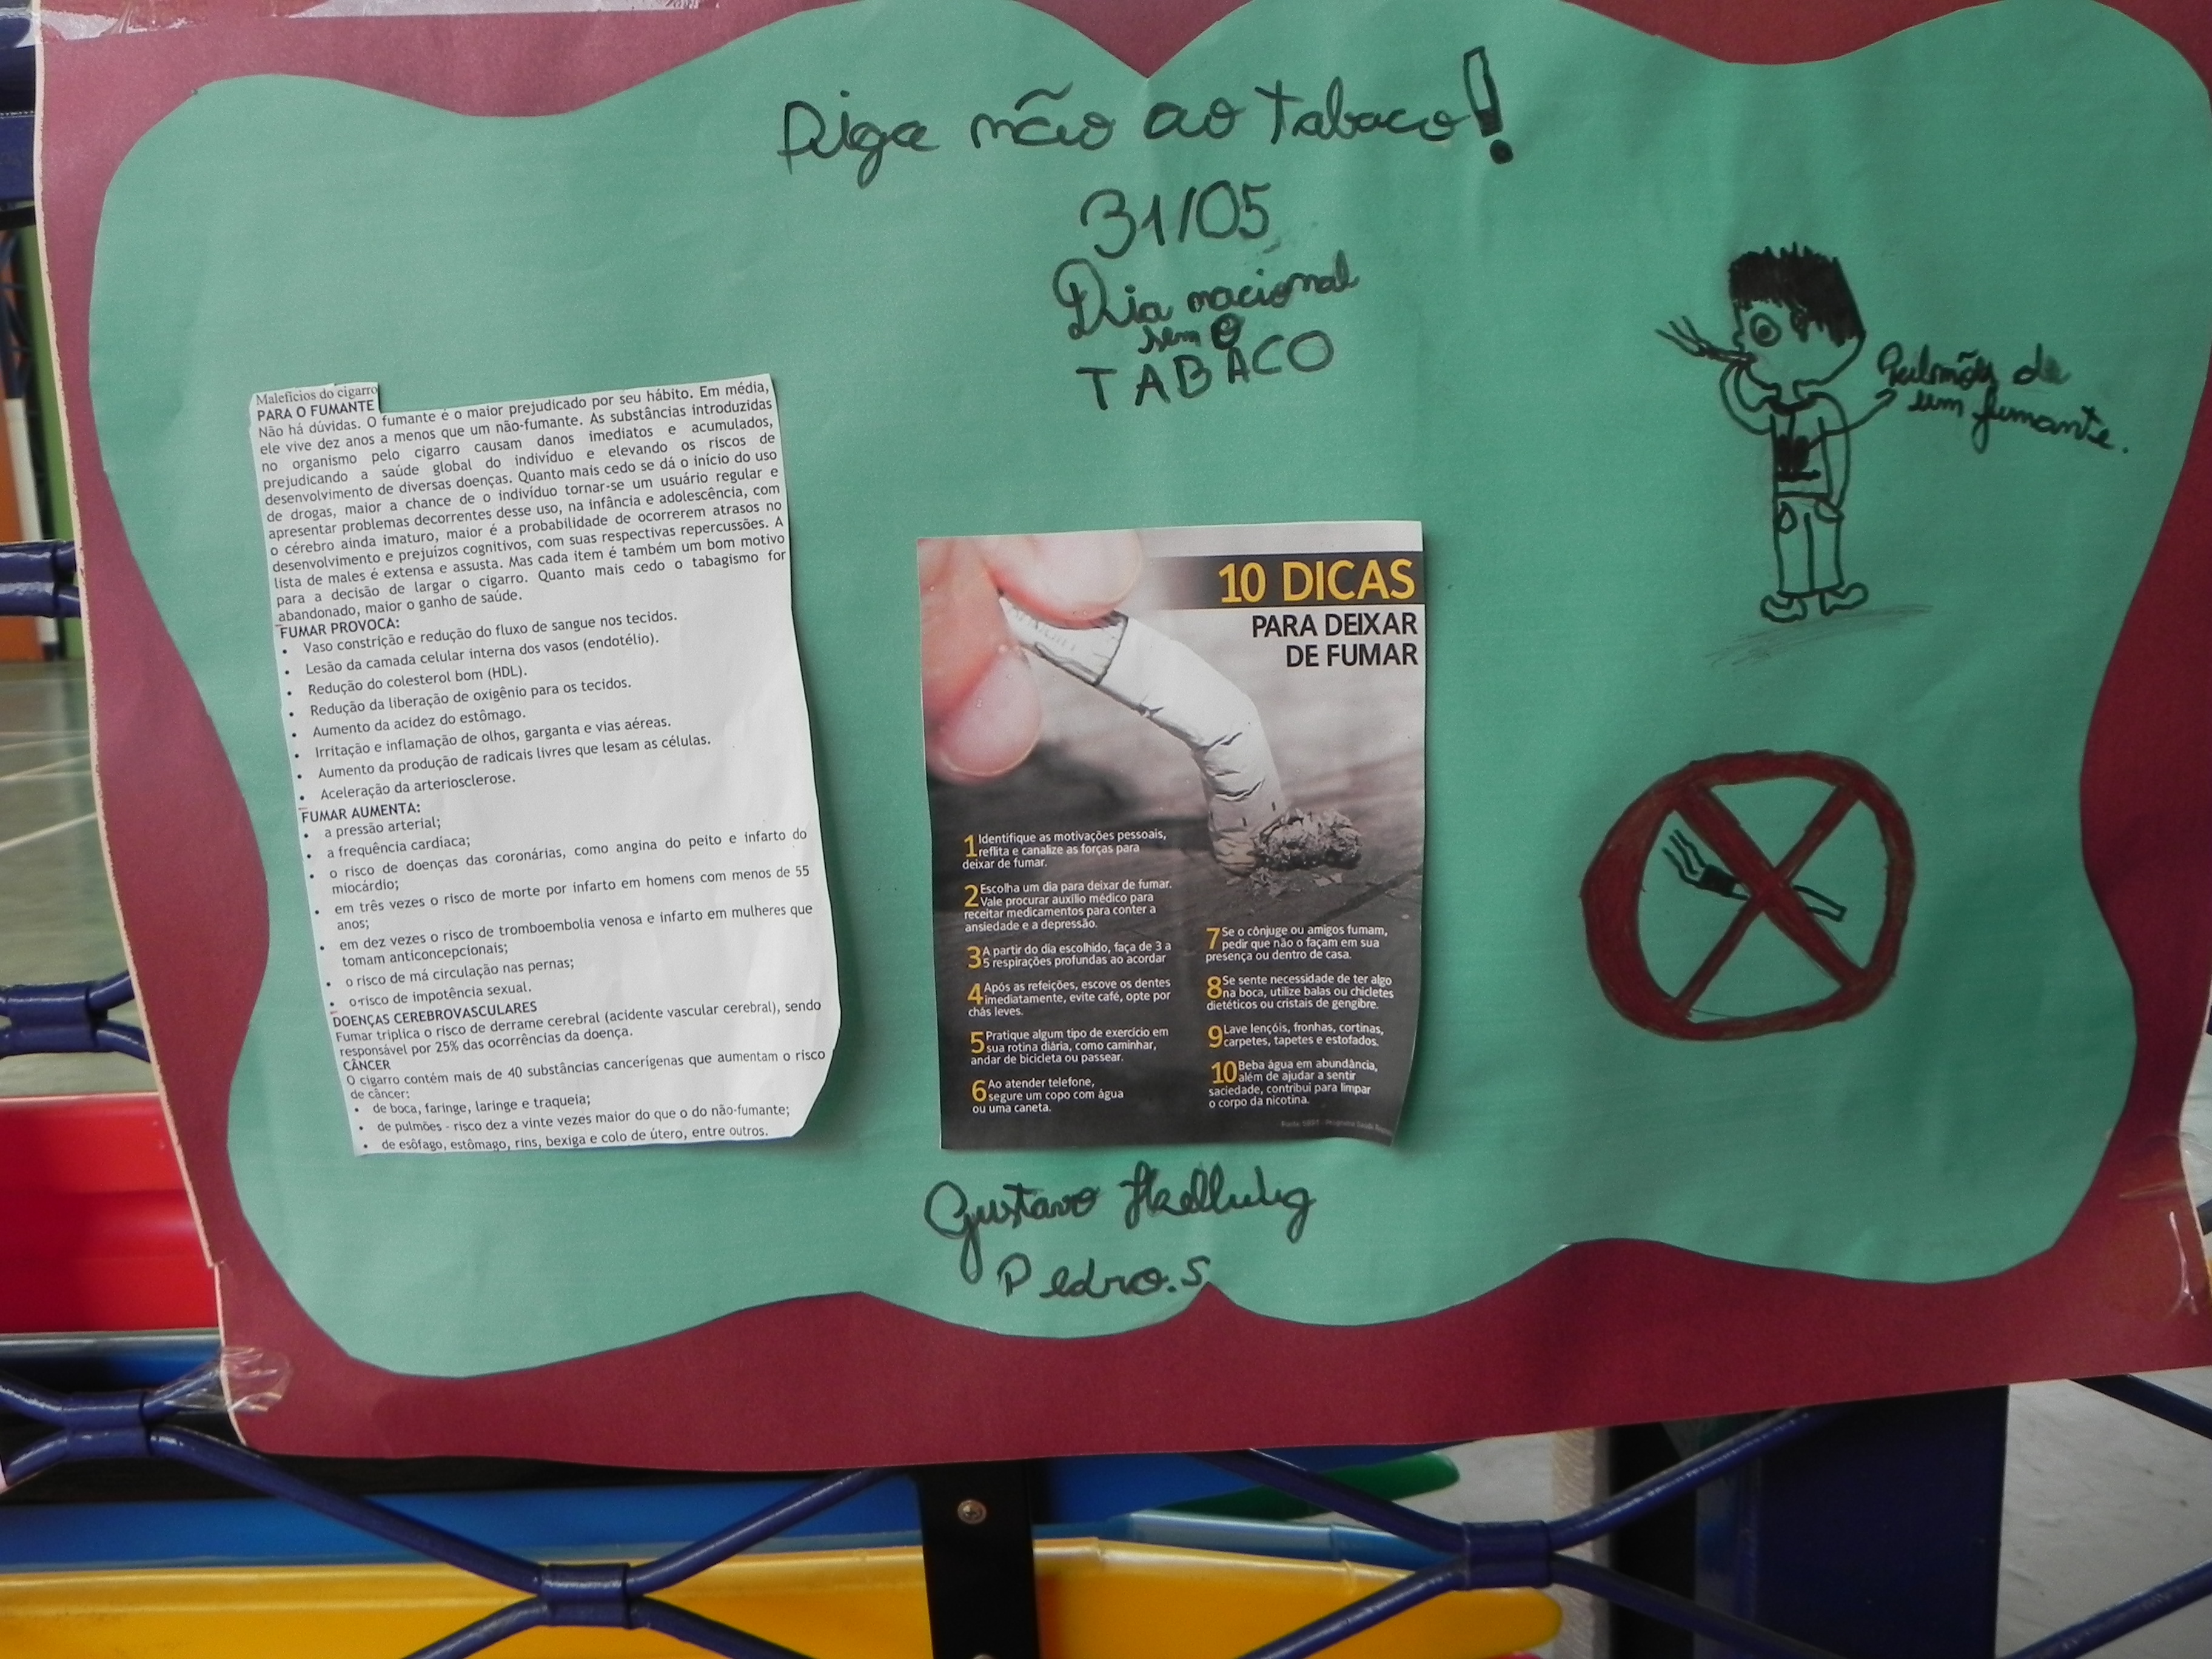 Diga não ao tabaco!
31/05
Dia nacional
sem o
TABACO
Malefícios do cigarro
PARA O FUMANTE
Não há dúvidas. O fumante é o maior prejudicado por seu hábito. Em média,
ele vive dez anos a menos que um não-fumante. As substâncias introduzidas
no organismo pelo cigarro causam danos imediatos e acumulados,
prejudicando a saúde global do indivíduo e elevando os riscos de
desenvolvimento de diversas doenças. Quanto mais cedo se dá o início do uso
de drogas, maior a chance de o indivíduo tornar-se um usuário regular e
apresentar problemas decorrentes desse uso, na infância e adolescência, com
o cérebro ainda imaturo, maior é a probabilidade de ocorrerem atrasos no
desenvolvimento e prejuízos cognitivos, com suas respectivas repercussões. A
lista de males é extensa e assusta. Mas cada item é também um bom motivo
para a decisão de largar o cigarro. Quanto mais cedo o tabagismo for
abandonado, maior o ganho de saúde.
FUMAR PROVOCA:
• Vaso constrição e redução do fluxo de sangue nos tecidos.
• Lesão da camada celular interna dos vasos (endotélio).
• Redução do colesterol bom (HDL).
• Redução da liberação de oxigênio para os tecidos.
• Aumento da acidez do estômago.
• Irritação e inflamação de olhos, garganta e vias aéreas.
• Aumento da produção de radicais livres que lesam as células.
• Aceleração da arteriosclerose.
FUMAR AUMENTA:
• a pressão arterial;
• a frequência cardíaca;
• o risco de doenças das coronárias, como angina do peito e infarto do
miocárdio;
• em três vezes o risco de morte por infarto em homens com menos de 55
anos;
• em dez vezes o risco de tromboembolia venosa e infarto em mulheres que
tomam anticoncepcionais;
• o risco de má circulação nas pernas;
• o risco de impotência sexual.
DOENÇAS CEREBROVASCULARES
Fumar triplica o risco de derrame cerebral (acidente vascular cerebral), sendo
responsável por 25% das ocorrências da doença.
CÂNCER
O cigarro contém mais de 40 substâncias cancerígenas que aumentam o risco
de câncer:
• de boca, faringe, laringe e traqueia;
• de pulmões - risco dez a vinte vezes maior do que o do não-fumante;
• de esôfago, estômago, rins, bexiga e colo de útero, entre outros.
10 DICAS
PARA DEIXAR
DE FUMAR
1 Identifique as motivações pessoais,
reflita e canalize as forças para
deixar de fumar.
2 Escolha um dia para deixar de fumar.
Vale procurar auxílio médico para
receitar medicamentos para conter a
ansiedade e a depressão.
3 A partir do dia escolhido, faça de 3 a
5 respirações profundas ao acordar
4 Após as refeições, escove os dentes
imediatamente, evite café, opte por
chás leves.
5 Pratique algum tipo de exercício em
sua rotina diária, como caminhar,
andar de bicicleta ou passear.
6 Ao atender telefone,
segure um copo com água
ou uma caneta.
7 Se o cônjuge ou amigos fumam,
pedir que não o façam em sua
presença ou dentro de casa.
8 Se sente necessidade de ter algo
na boca, utilize balas ou chicletes
dietéticos ou cristais de gengibre.
9 Lave lençóis, fronhas, cortinas,
carpetes, tapetes e estofados.
10 Beba água em abundância,
além de ajudar a sentir
saciedade, contribui para limpar
o corpo da nicotina.
Pulmões de
um fumante.
Gustavo
Pedro.S